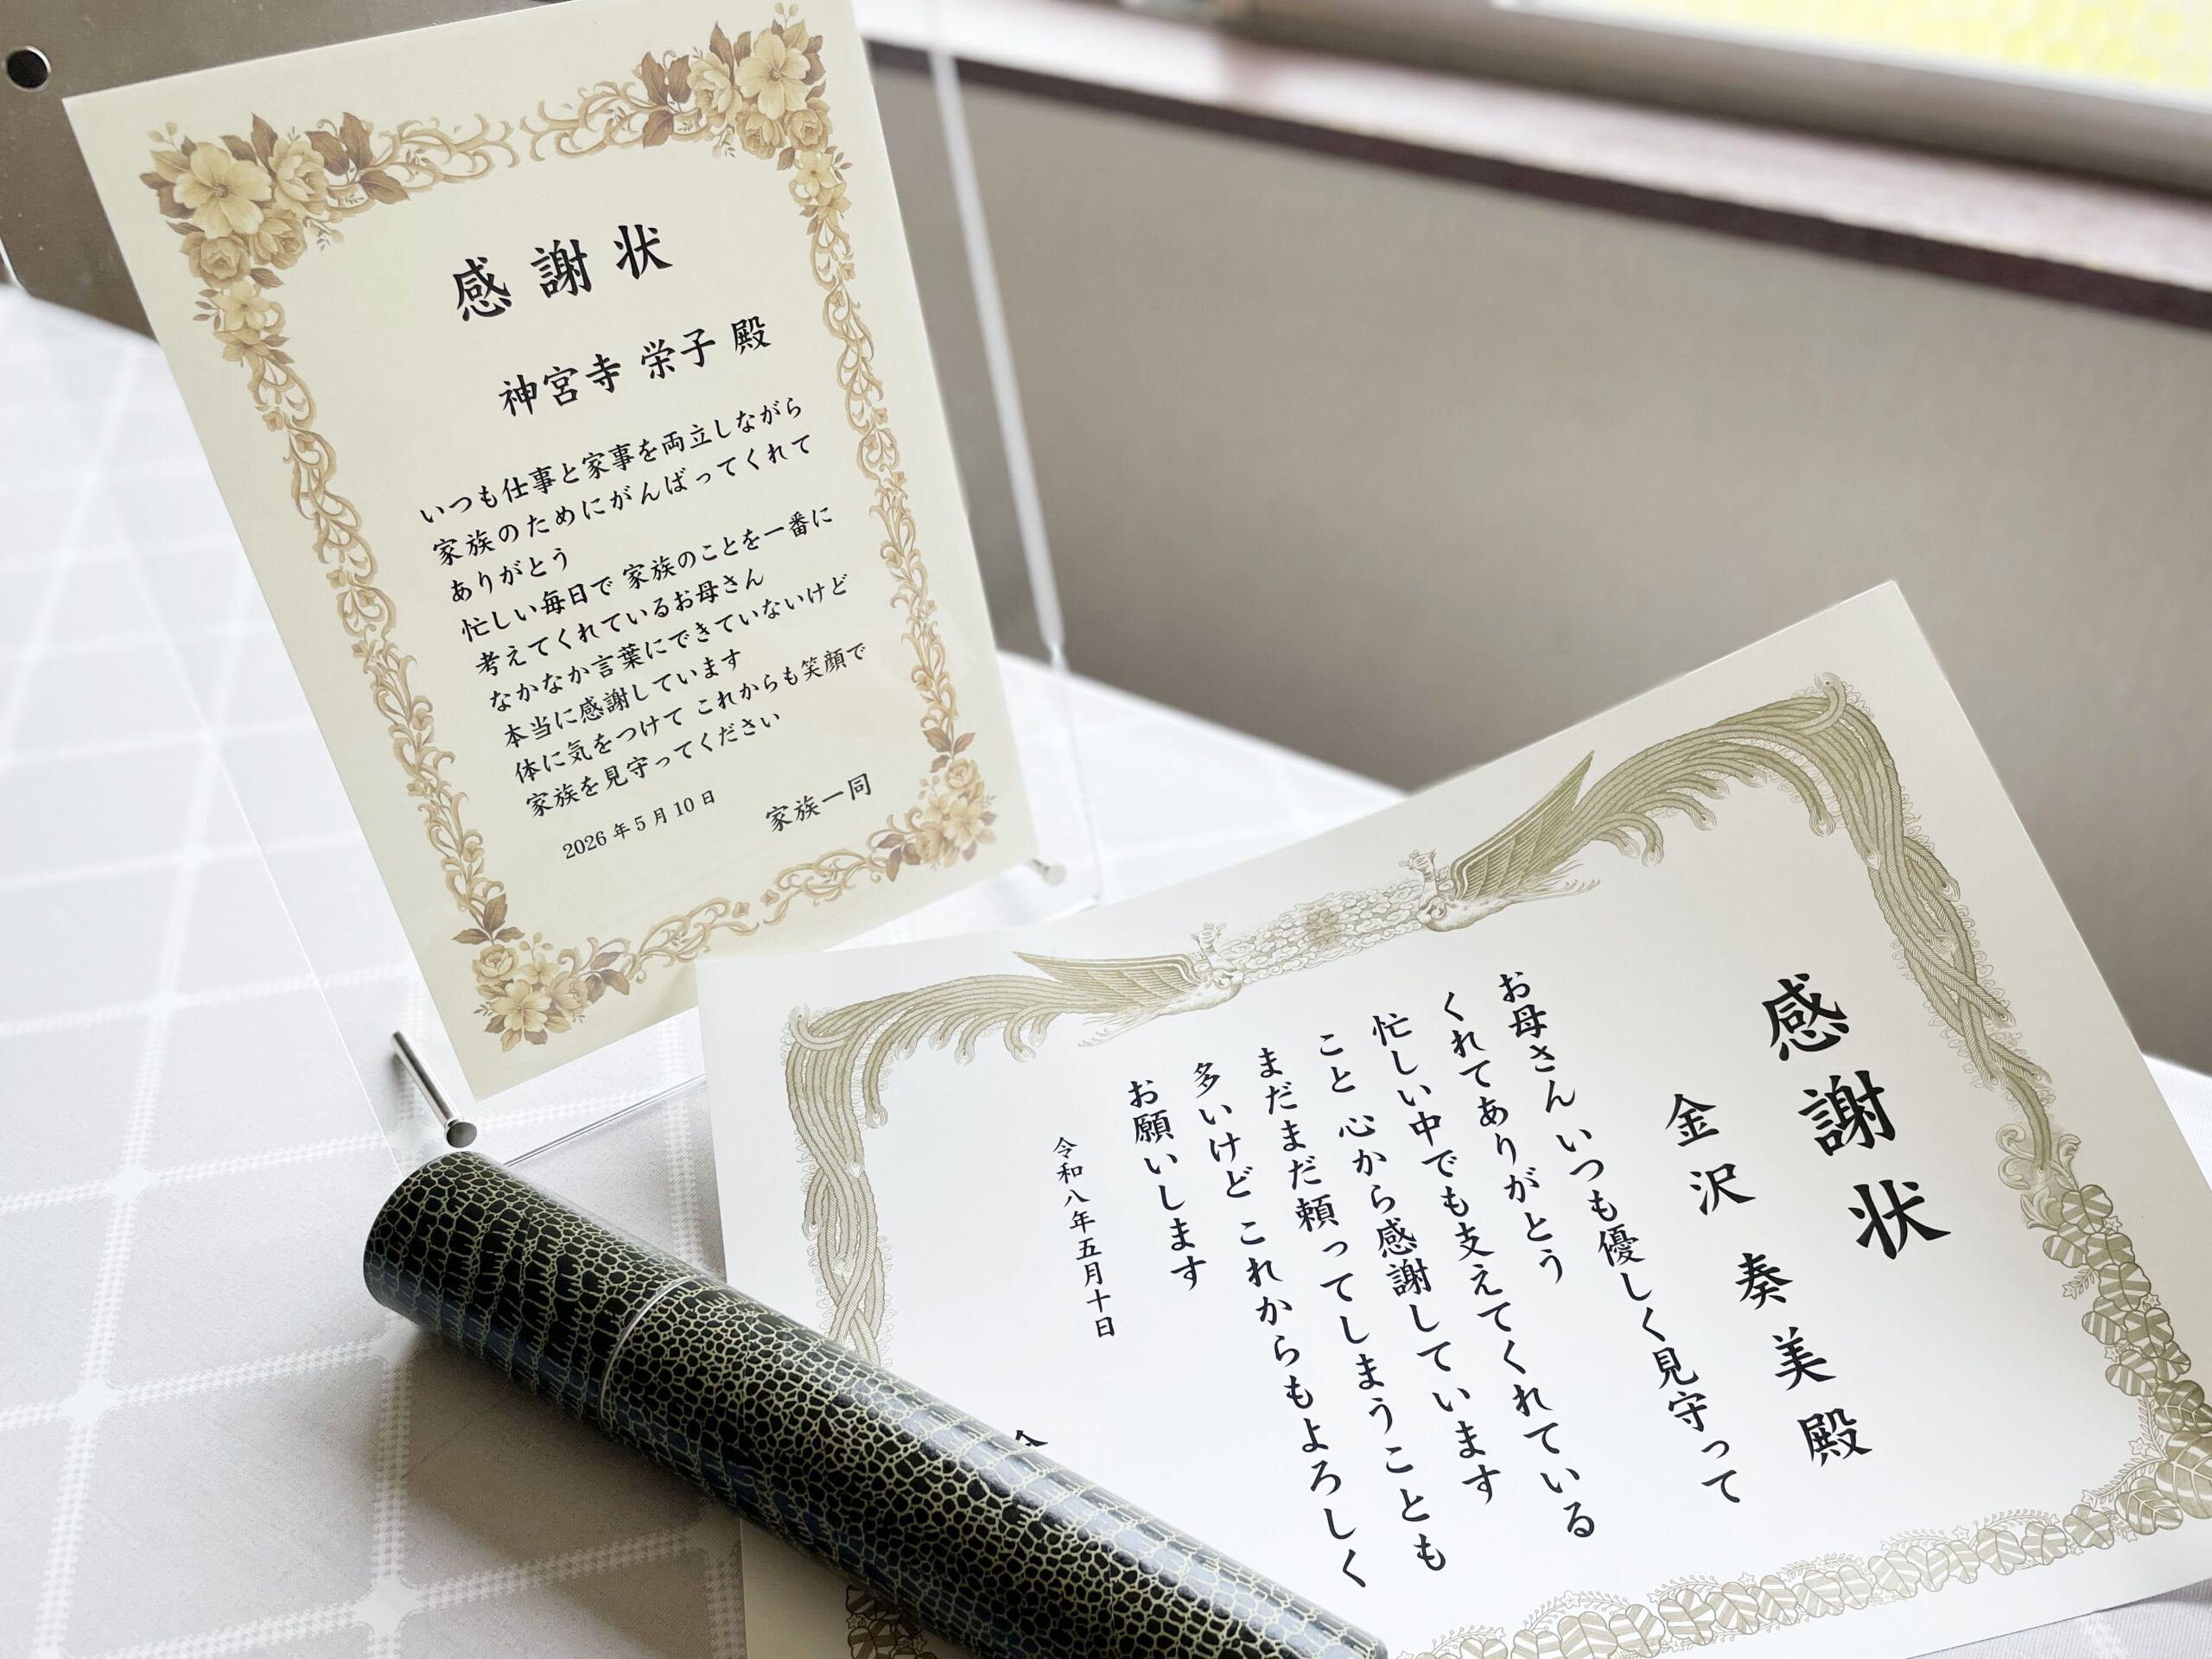 感謝状
神宮寺 栄子 殿
いつも仕事と家事を両立しながら
家族のためにがんばってくれて
ありがとう
忙しい毎日で 家族のことを一番に
考えてくれているお母さん
なかなか言葉にできていないけど
本当に感謝しています
体に気をつけて これからも笑顔で
家族を見守ってください
2026年5月10日
家族一同
感謝状
金沢 奏美 殿
お母さん いつも優しく見守って
くれてありがとう
忙しい中でも支えてくれている
こと 心から感謝しています
まだまだ頼ってしまうことも
多いけど これからもよろしく
お願いします
令和八年五月十日